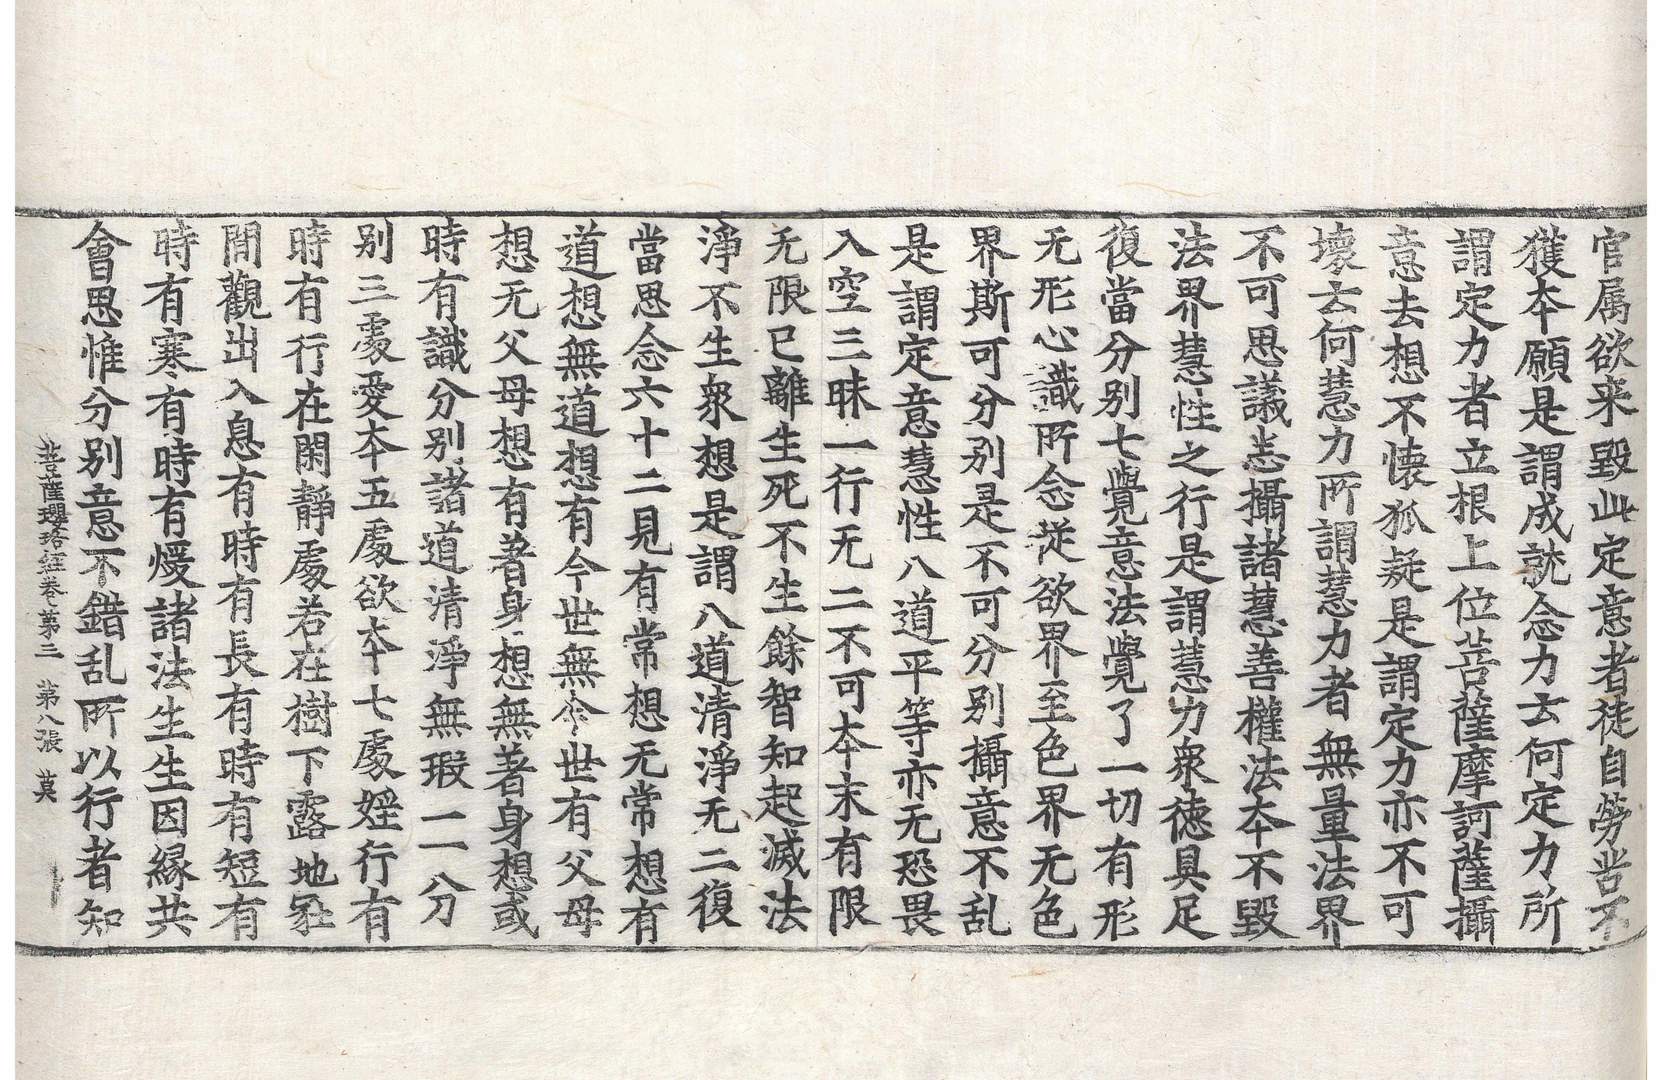 官属欲来毀此定意者徒自勞苦不
獲本願是謂成就念力云何定力所
謂定力者立根上位菩薩摩訶薩攝
意去想不懐狐疑是謂定力亦不可
壞云何慧力所謂慧力者無量法界
不可思議悉攝諸慧善權法本不毀
法界慧性之行是謂慧力衆德具足
復當分别七覺意法覺了一切有形
无形心識所念從欲界至色界无色
界斯可分别是不可分别攝意不乱
是謂定意慧性八道平等亦无恐畏
入空三昧一行无二不可本末有限
无限已離生死不生餘智知起滅法
淨不生衆想是謂八道清淨无二復
當思念六十二見有常想无常想有
道想無道想有今世無今世有父母
想无父母想有著身想無著身想或
時有識分别諸道清淨無瑕一一分
别三處愛本五處欲本七處婬行有
時有行在閑靜處若在樹下露地冢
間觀出入息有時有長有時有短有
時有寒有時有煖諸法生生因緣共
會思惟分别意不錯乱所以行者知
菩薩瓔珞経卷第三　第八張　莫